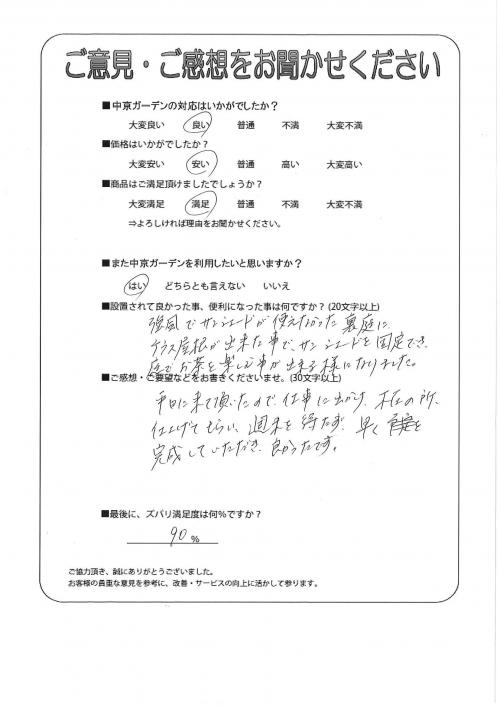 ご意見・ご感想をお聞かせください
■中京ガーデンの対応はいかがでしたか？
大変良い 良い 普通 不満 大変不満
■価格はいかがでしたか？
大変安い 安い 普通 高い 大変高い
■商品はご満足頂けましたでしょうか？
大変満足 満足 普通 不満 大変不満
⇒よろしければ理由をお聞かせください。
■また中京ガーデンを利用したいと思いますか？
はい どちらとも言えない いいえ
■設置されて良かった事、便利になった事は何ですか？(20文字以上)
強風でサンシェードが使えなかった裏庭に、
テラス屋根が出来た事でサンシェードを固定でき、
庭でお茶を楽しむ事が出来る様になりました。
■ご感想・ご要望などをお書きくださいませ。(30文字以上)
平日に来て頂いたので、仕事に出かけ、不在の所、
仕上げてもらい、週末を待たず、早く
完成していただき、良かったです。
■最後に、ズバリ満足度は何％ですか？
90 ％
ご協力頂き、誠にありがとうございました。
お客様の貴重な意見を参考に、改善・サービスの向上に活かして参ります。